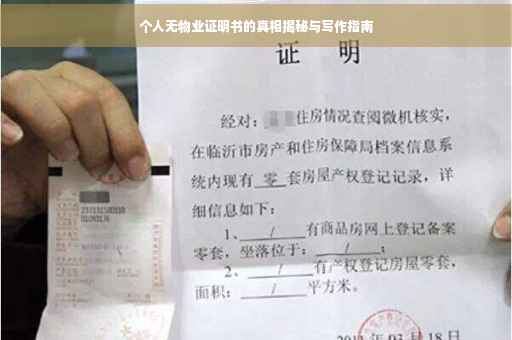 个人无物业证明书的真相揭秘与写作指南
证 明
经对: 住房情况查阅微机核实,
在临沂市房产和住房保障局档案信息系
统内现有 零 套房屋产权登记记录,详
细信息如下:
1、 / 有商品房网上登记备案
零套,坐落位于: / ;
2、 / 有产权登记房屋零套,
面积: / 平方米。
年 03 月 18 日